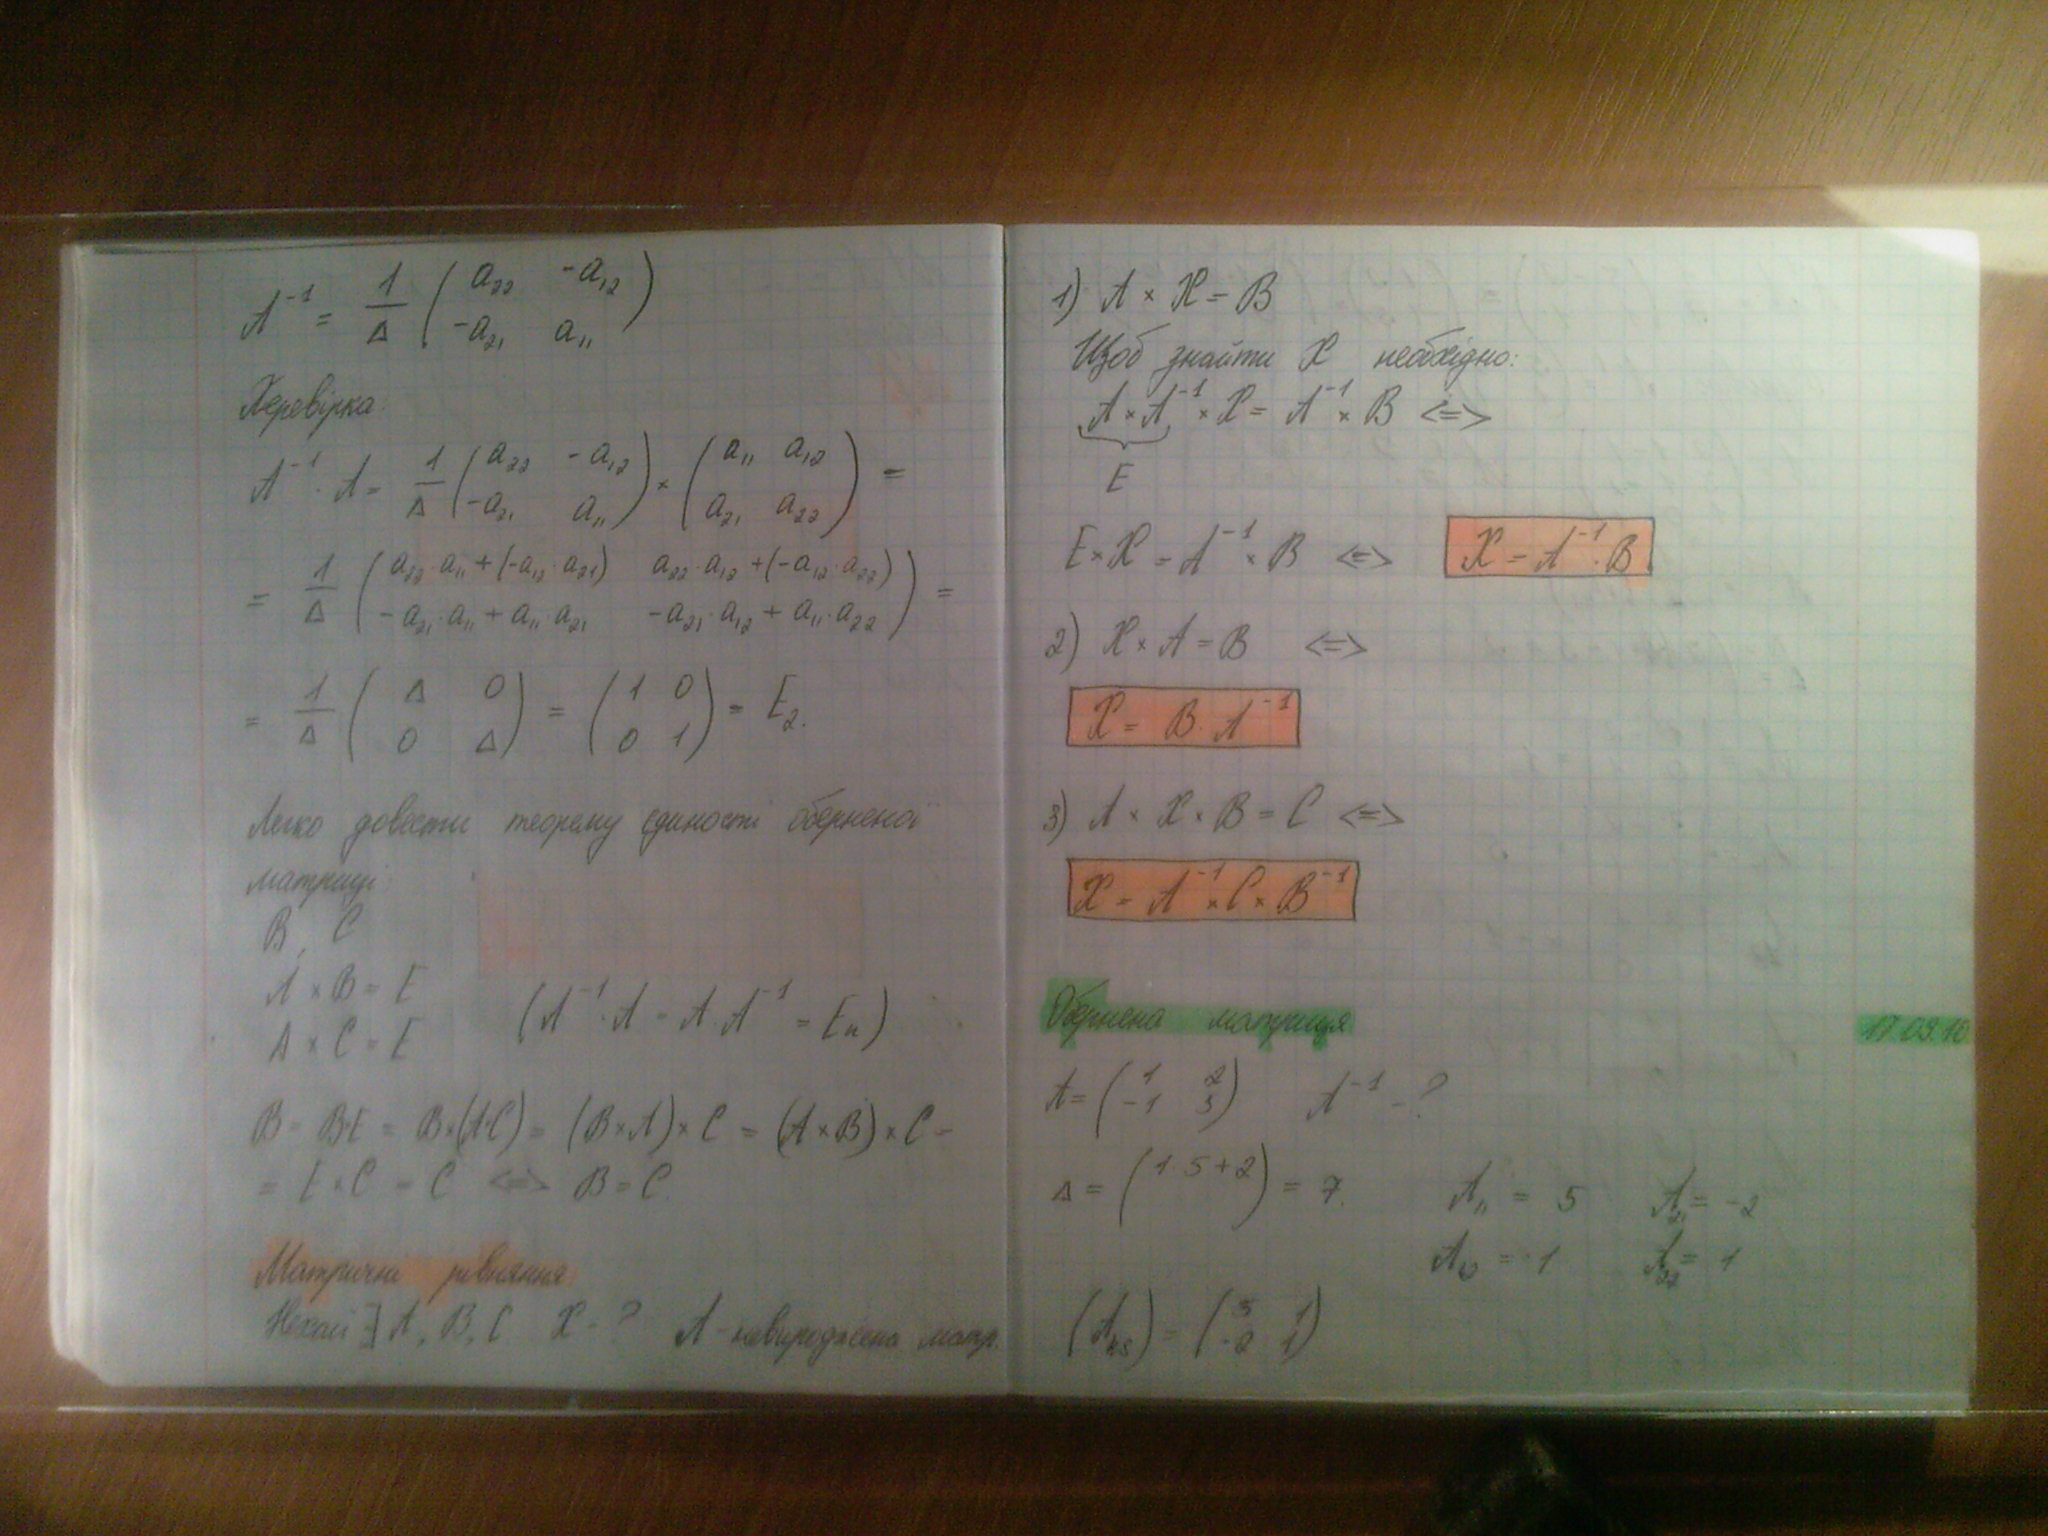 A⁻¹ = 1/Δ ( a₂₂ -a₁₂
-a₂₁ a₁₁ )
Перевірка:
A⁻¹ · A = 1/Δ ( a₂₂ -a₁₂
-a₂₁ a₁₁ ) × ( a₁₁ a₁₂
a₂₁ a₂₂ ) =
= 1/Δ ( a₂₂·a₁₁+(-a₁₂·a₂₁) a₂₂·a₁₂+(-a₁₂·a₂₂)
-a₂₁·a₁₁+a₁₁·a₂₁ -a₂₁·a₁₂+a₁₁·a₂₂ ) =
= 1/Δ ( Δ 0
0 Δ ) = ( 1 0
0 1 ) = E₂.
Легко довести теорему єдиності оберненої
матриці
B, C
A × B = E
A × C = E
(A⁻¹·A = A·A⁻¹ = Eₙ)
B = B·E = B×(A·C) = (B×A)×C = (A×B)×C =
= E×C = C <=> B = C.
Матричні рівняння
Нехай ∃ A, B, C X - ? A - невироджена матр.
1) A × X = B
Щоб знайти X необхідно:
A × A⁻¹ × X = A⁻¹ × B <=>
E
E × X = A⁻¹ × B <=> X = A⁻¹ · B
2) X × A = B <=>
X = B · A⁻¹
3) A × X × B = C <=>
X = A⁻¹ × C × B⁻¹
Обернена матриця 17.09.10
A = ( 1 2
-1 5 ) A⁻¹ - ?
Δ = ( 1·5+2 ) = 7. A₁₁ = 5 A₂₁ = -2
A₁₂ = 1 A₂₂ = 1
(Aₖₛ) = ( 5 1
-2 1 )